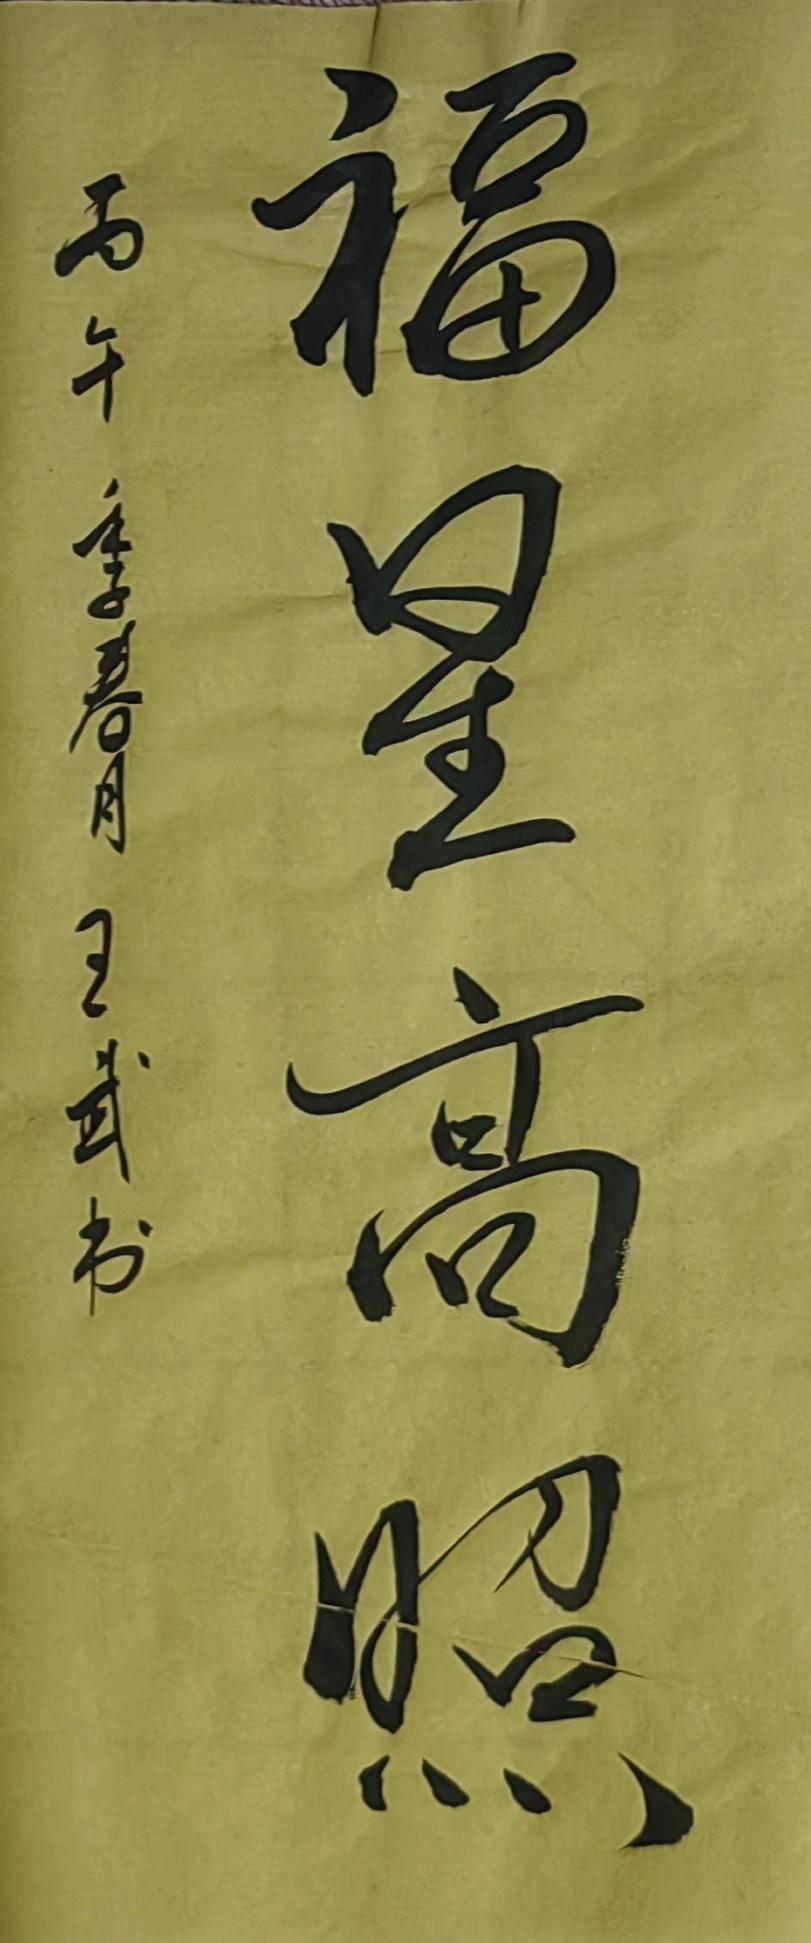 福星高照
丙午季春月王武书